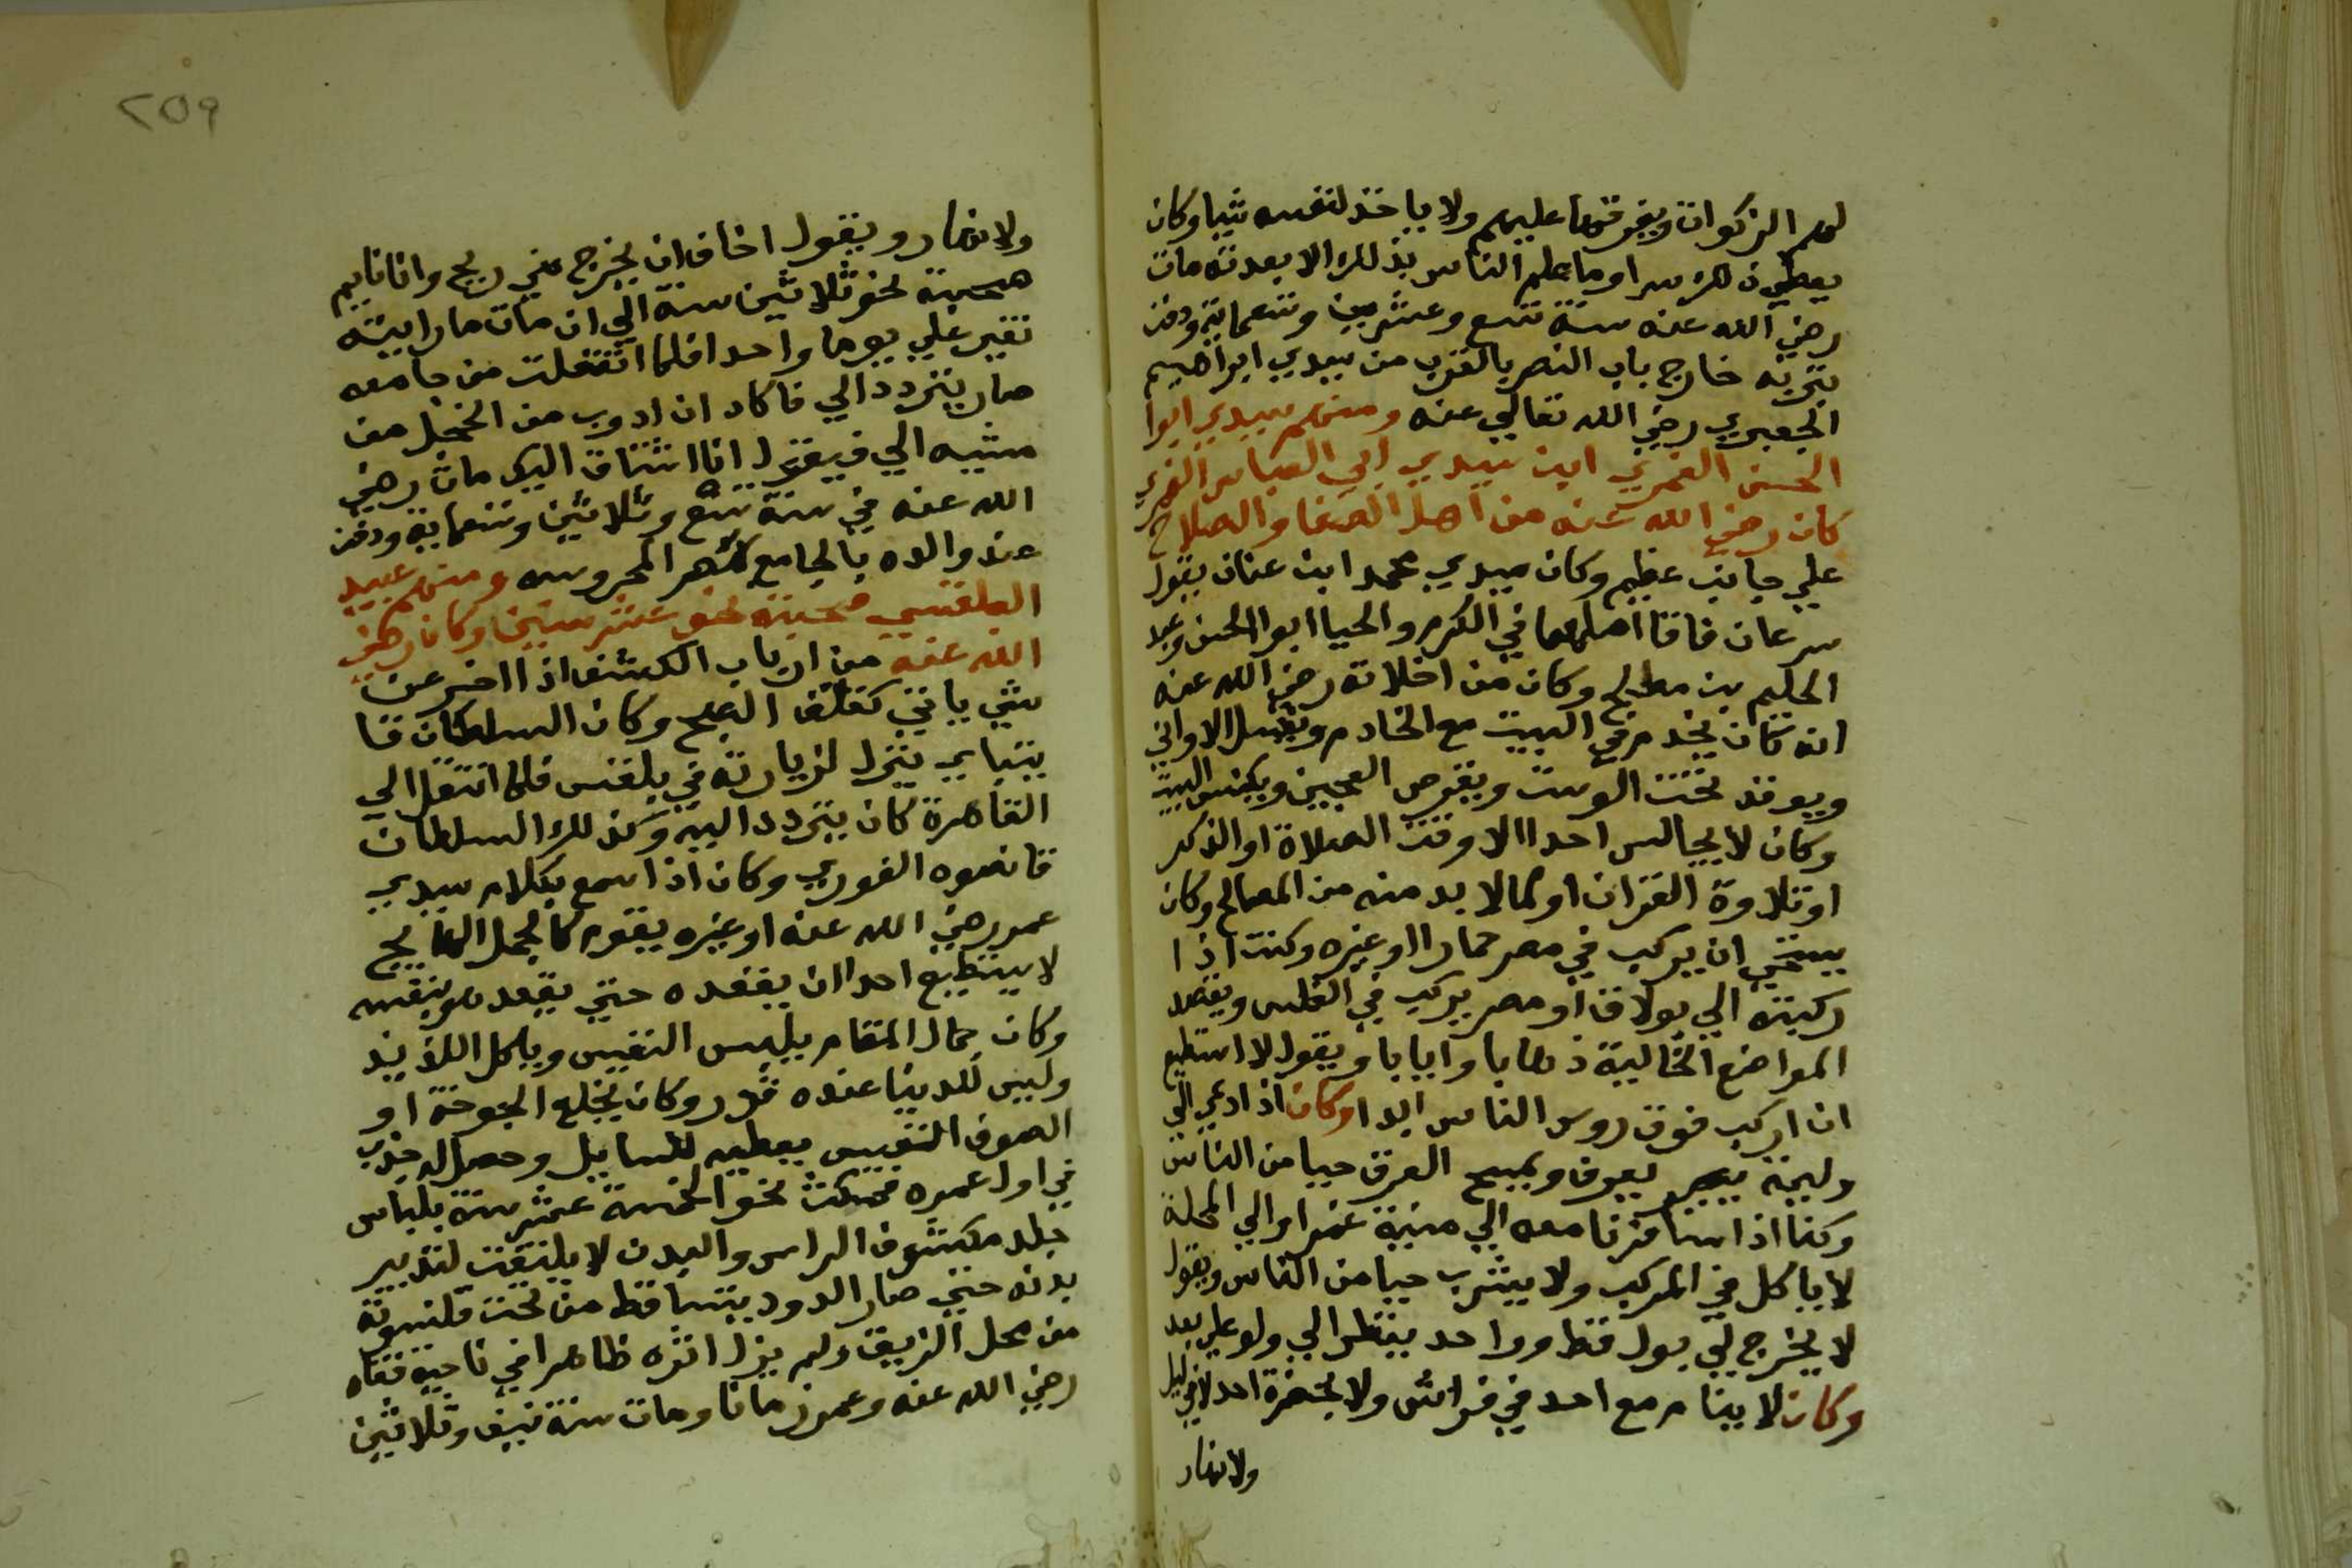 لهم الزكوات ويفرقها عليهم ولا ياخذ لنفسه شيا وكان
يعطي ذلك سرا وما علم الناس بذلك الا بعد ته مات
رضي الله عنه سنة تسع وعشرين وتسعماية ودفن
بتربته خارج باب النصر بالقرب من سيدي ابراهيم
الجعبري رضي الله تعالي عنه ومنهم سيدي ابوا
الحسن الغمري ابن سيدي ابي العباس الغمري
كان رضي الله عنه من اهل الصفا والصلاح
علي جانب عظيم وكان سيدي محمد ابن عنان يقول
سرعان فاقا اصلهما في الكرم والحيا ابوا الحسن وعبد
الحليم بن مصلح وكان من اخلاقه رضي الله عنه
انه كان يخدم في البيت مع الخادم ويغسل الاواني
ويوقد تحت الوست ويقرص العجين ويكنس البيت
وكان لا يجالس احدا الا وقت الصلاة او الذكر
او تلاوة القران او لما لا بد منه من المصالح وكان
يستحي ان يركب في مصر حمارا او غيره وكنت اذا
ركبته الي بولاق او مصر يركب في الغلس ويقصد
المواضع الخالية ذهابا وايابا ويقول لا استطيع
ان اركب فوق روس الناس ابدا وكان اذا دعي الي
وليمة يصير يعرق ويمسح العرق حيا من الناس
وكنا اذا سافرنا معه الي منية غمر او الي المحلة
لا ياكل في المركب ولا يشرب حيا من الناس ويقول
لا يخرج لي بول قط وواحد ينظر الي ولو علي بعد
وكان لا ينام مع احد في فراش ولا بحضرة احد لا في ليل
ولا نهار
ولا نهار ويقول اخاف ان يخرج مني ريح وانا نايم
صحبته نحو ثلاثين سنة الي ان مات ما رايته
تغير علي يوما واحدا فلما انتقلت من جامعه
صار يتردد الي فاكاد ان ادوب من الخجل من
مشيه الي فيقول انا اشتاق اليك مات رضي
الله عنه في سنة تسع وثلاثين وتسعماية ودفن
عند والده بالجامع بمصر المحروسه ومنهم عبيد
البلقسي صحبته نحو عشر سنين وكان رضي
الله عنه من ارباب الكشف اذا اخبر عن
شي ياتي كفلق الصبح وكان السلطان قا
يتباي ينزل لزيارته في بلقس فلما انتقل الي
القاهرة كان يتردد اليه وكذلك السلطان
قانصوه الغوري وكان اذا سمع بكلام سيدي
عمر رضي الله عنه او غيره يقوم كالجمل الهايج
لا يستطيع احدا ان يقعده حتي يقعد هو بنفسه
وكان جمال المقام يلبس النفيس وياكل اللذيذ
وليس للدنيا عنده قدر وكان يخلع الجوخة او
الصوف النفيس يعطيه للسايل وحصل له جذب
في اول عمره فمكث نحو الخمسة عشر سنة بلباس
جلد مكشوف الراس والبدن لا يلتفت لتدبير
بدنه حتي صار الدود يتساقط من تحت قلنسوته
من محل الزيق ولم يزل اثره ظاهرا في ناحية قفاه
رضي الله عنه وعمر زمانا ومات سنة نيف وثلاثين
٢٥٩